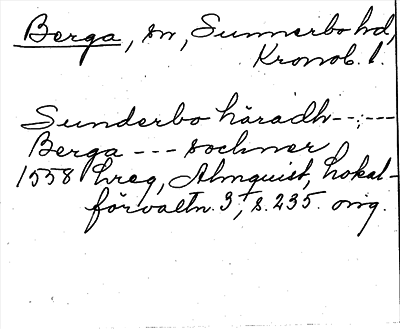 Berga, sn, Sunnerbo hd,
Kronob. l.
Sunderbo häradh --;---
Berga --- sochner
1558 hreg, Almquist, Lokal-
förvaltn. 3, s. 235. orig.